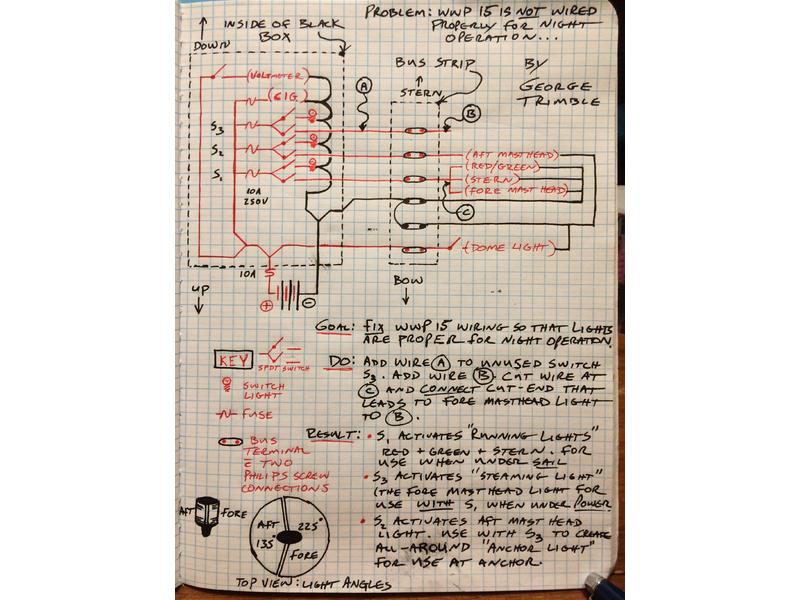 PROBLEM: WWP 15 IS NOT WIRED
PROPERLY FOR NIGHT
OPERATION...
INSIDE OF BLACK
BOX
DOWN
BUS STRIP
STERN
BY
GEORGE
TRIMBLE
(VOLTMETER)
(CIG.)
A
B
S3
S2
S1
10A
250V
(AFT MASTHEAD)
(RED/GREEN)
(STERN)
(FORE MAST HEAD)
C
(DOME LIGHT)
10A
+
-
UP
BOW
GOAL: FIX WWP 15 WIRING SO THAT LIGHTS
ARE PROPER FOR NIGHT OPERATION.
DO: ADD WIRE A TO UNUSED SWITCH
S3. ADD WIRE B. CUT WIRE AT
C AND CONNECT CUT-END THAT
LEADS TO FORE MASTHEAD LIGHT
TO B.
KEY
SPDT SWITCH
SWITCH
LIGHT
FUSE
BUS
TERMINAL
c̄ TWO
PHILIPS SCREW
CONNECTIONS
RESULT: • S1 ACTIVATES "RUNNING LIGHTS"
RED + GREEN + STERN. FOR
USE WHEN UNDER SAIL
• S3 ACTIVATES "STEAMING LIGHT"
(THE FORE MAST HEAD LIGHT FOR
USE WITH S1 WHEN UNDER POWER
• S2 ACTIVATES AFT MAST HEAD
LIGHT. USE WITH S3 TO CREATE
ALL-AROUND "ANCHOR LIGHT"
FOR USE AT ANCHOR.
AFT
FORE
AFT
135°
225°
FORE
TOP VIEW: LIGHT ANGLES